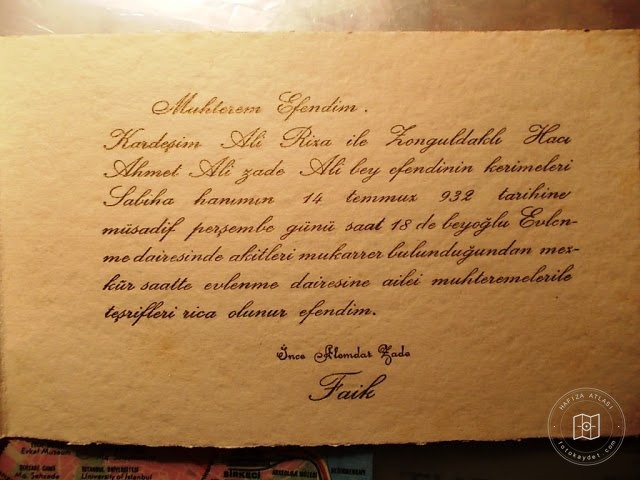 Muhterem Efendim.
Kardeşim Ali Riza ile Zonguldaklı Hacı
Ahmet Ali zade Ali bey efendinin kerimeleri
Sabiha hanımın 14 temmuz 932 tarihine
müsadif perşembe günü saat 18 de beyoğlu Evlen-
me dairesinde akitleri mukarrer bulunduğundan mez-
kür saatte evlenme dairesine ailei muhteremelerile
teşrifleri rica olunur efendim.
Ince Alemdar Zade
Faik
HAFIZA ATLASI
fotokaydet.com
Erkel Museum
Ma. Şehzade
İSTANBUL ÜNİVERSİTESİ
University of Istanbul
SİRKECİ
ARKEOLOJİ MÜZESİ